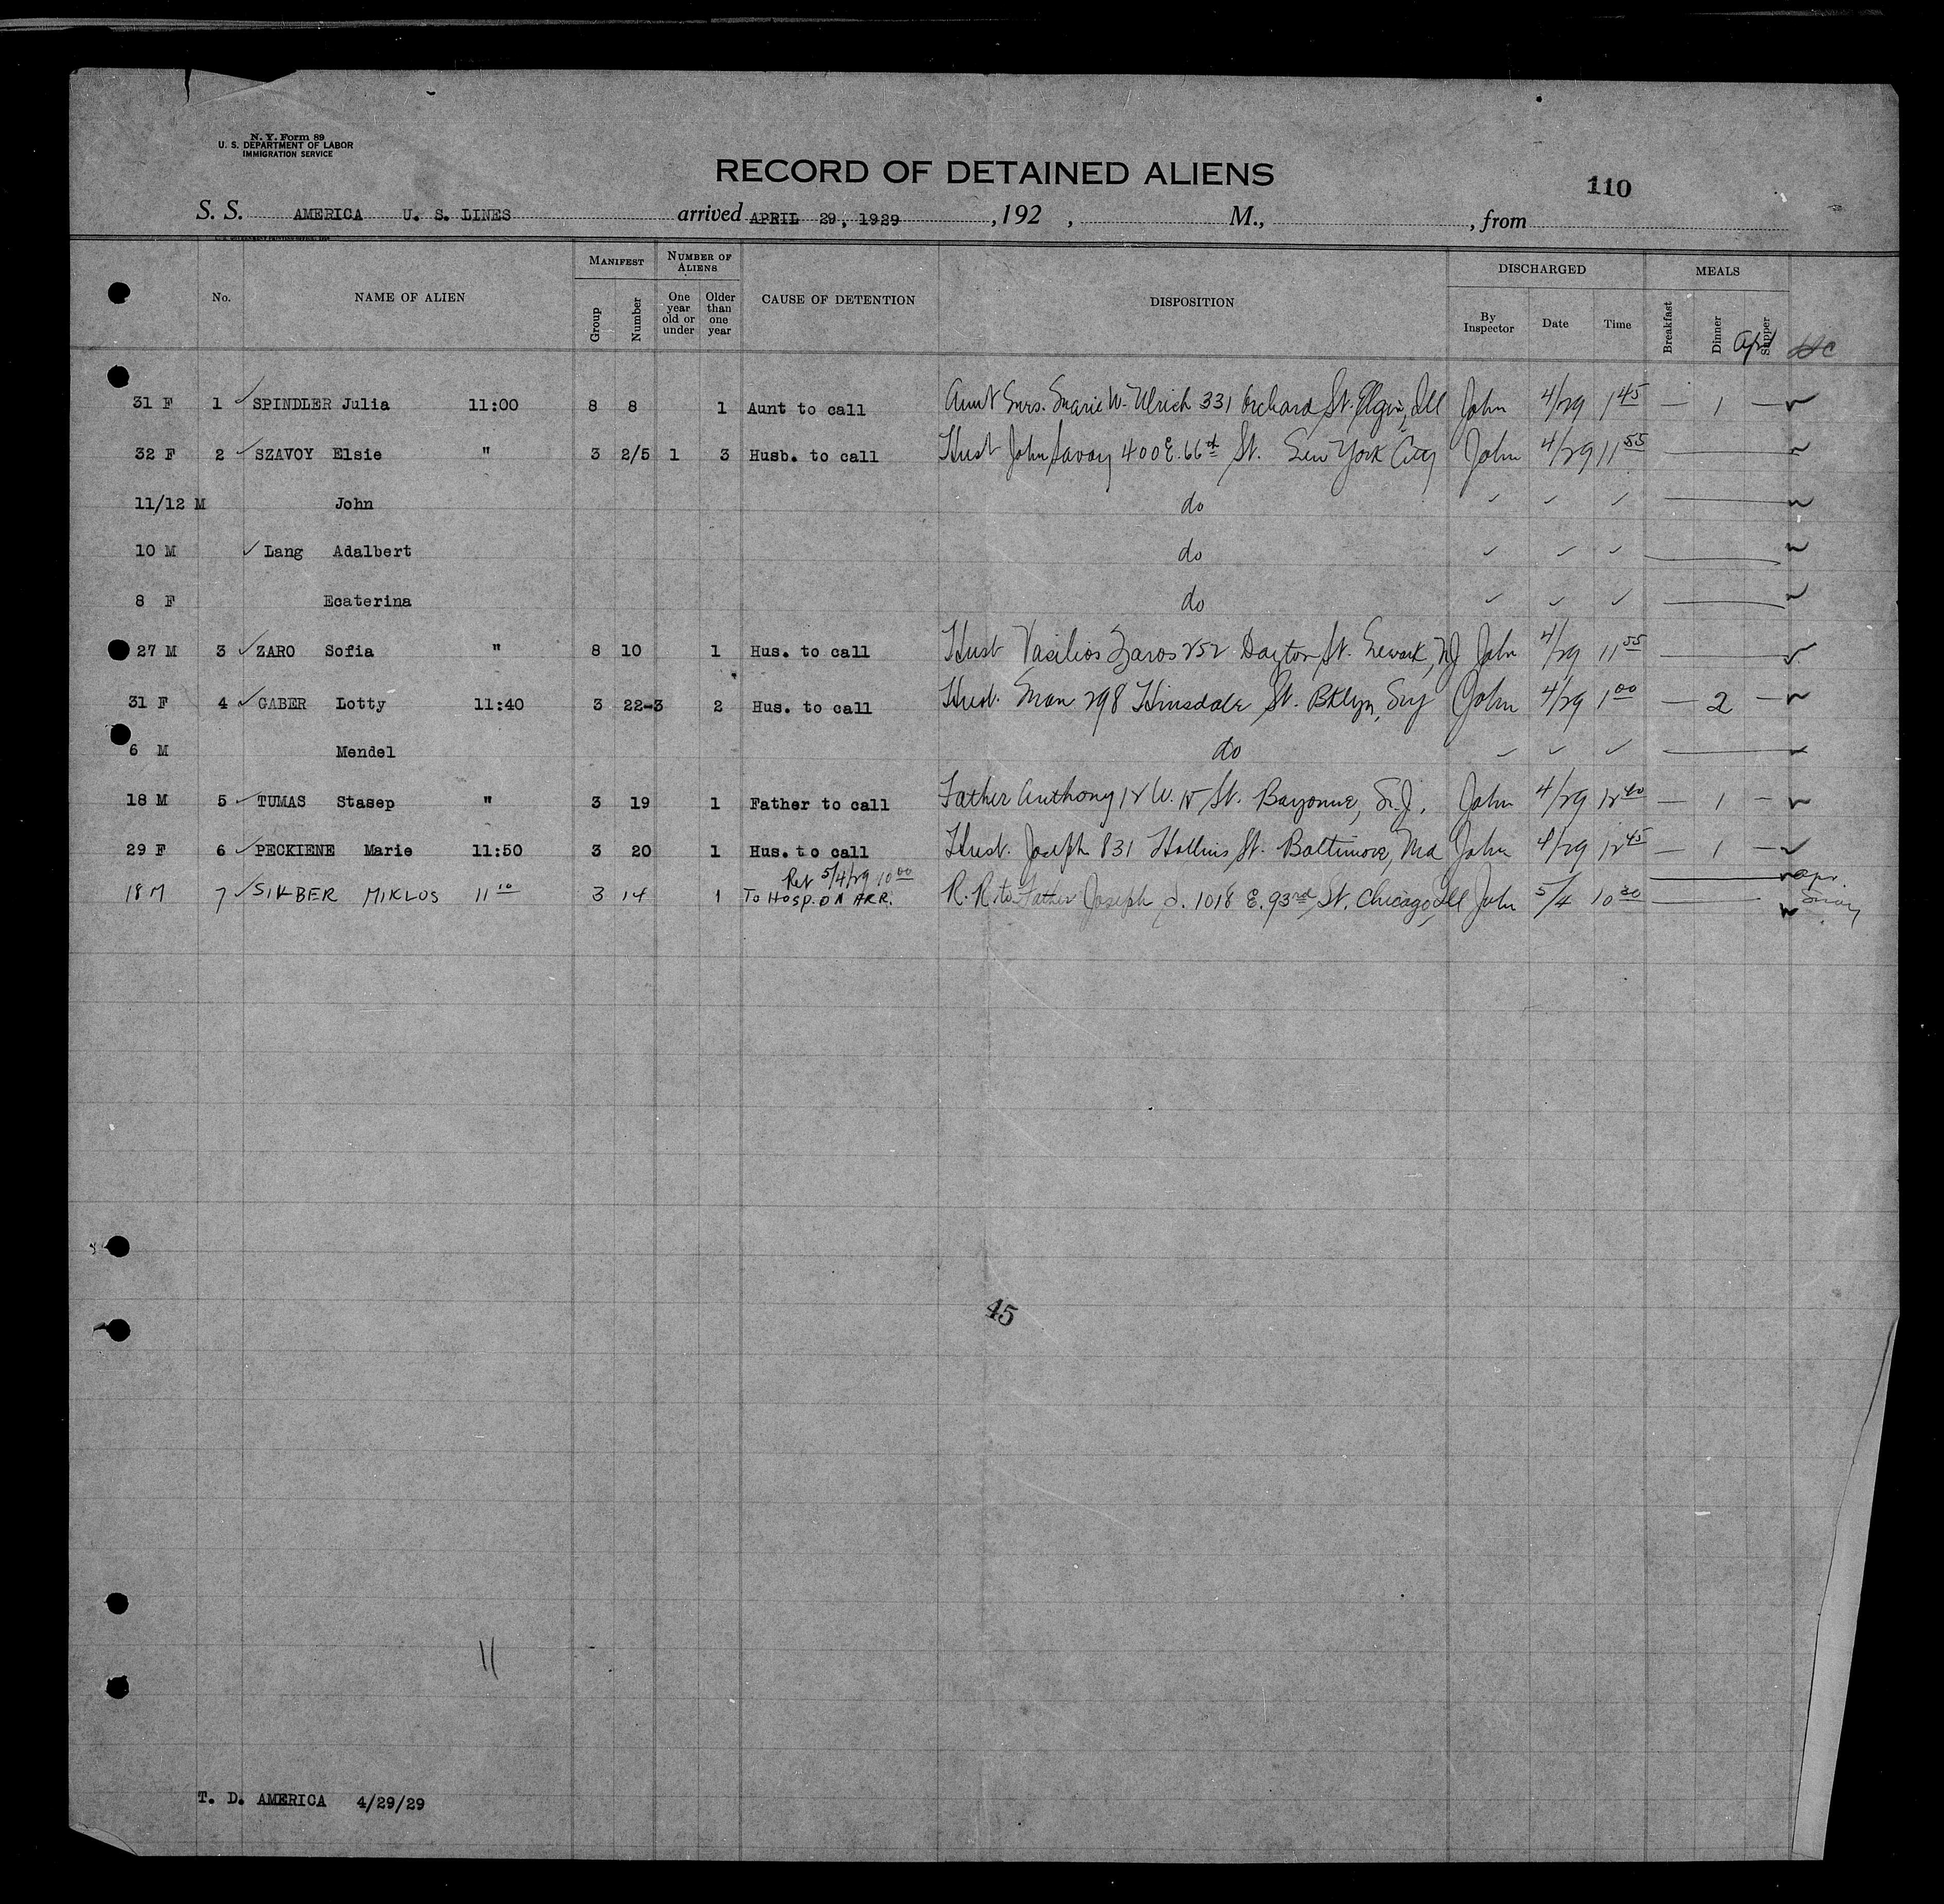 N. Y. Form 89
U. S. DEPARTMENT OF LABOR
IMMIGRATION SERVICE
RECORD OF DETAINED ALIENS
110
S. S. AMERICA U. S. LINES arrived APRIL 29, 1929 , 192 , M., , from
No. NAME OF ALIEN MANIFEST Group Number NUMBER OF ALIENS One year old or under Older than one year CAUSE OF DETENTION DISPOSITION DISCHARGED By Inspector Date Time MEALS Breakfast Dinner Supper
31 F 1 ✓ SPINDLER Julia 11:00 8 8 1 Aunt to call Aunt Mrs. Marie W. Ulrich 331 Orchard St. Elgin, Ill John 4/29 1 45 — 1 —
32 F 2 ✓ SZAVOY Elsie " 3 2/5 1 3 Husb. to call Husb John Savoy 400 E. 66th St. New York City John 4/29 11 55
11/12 M John do ✓ ✓ ✓
10 M ✓ Lang Adalbert do ✓ ✓ ✓
8 F Ecaterina do ✓ ✓ ✓
27 M 3 ✓ ZARO Sofia " 8 10 1 Hus. to call Husb Vasilios Zaros 252 Dayton St. Newark, NJ John 4/29 11 55
31 F 4 ✓ GABER Lotty 11:40 3 22-3 2 Hus. to call Husb. 298 Hinsdale St. Bklyn, Ny John 4/29 1 00 — 2 —
6 M Mendel do ✓ ✓ ✓
18 M 5 ✓ TUMAS Stasep " 3 19 1 Father to call Father Anthony 12 W. 15 St. Bayonne, N.J. John 4/29 12 40 — 1 —
29 F 6 ✓ PECKIENE Marie 11:50 3 20 1 Hus. to call Husb. Joseph 831 Hollins St. Baltimore, Md John 4/29 12 45 — 1 —
Ret 5/4/29 10 00
18 M 7 ✓ MIKLOS 11 10 3 14 1 To HOSP. ON ARR. R. R. to Father Joseph S. 1018 E. 93rd St. Chicago, Ill John 5/4 10 30
45
11
T. D. AMERICA 4/29/29